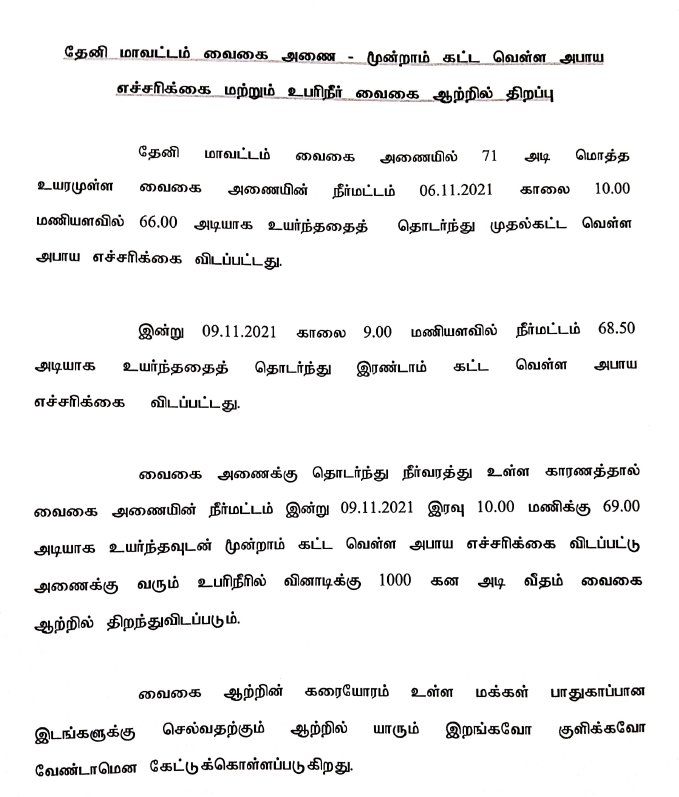 தேனி மாவட்டம் வைகை அணை - மூன்றாம் கட்ட வெள்ள அபாய
எச்சரிக்கை மற்றும் உபரிநீர் வைகை ஆற்றில் திறப்பு
தேனி மாவட்டம் வைகை அணையில் 71 அடி மொத்த
உயரமுள்ள வைகை அணையின் நீர்மட்டம் 06.11.2021 காலை 10.00
மணியளவில் 66.00 அடியாக உயர்ந்ததைத் தொடர்ந்து முதல்கட்ட வெள்ள
அபாய எச்சரிக்கை விடப்பட்டது.
இன்று 09.11.2021 காலை 9.00 மணியளவில் நீர்மட்டம் 68.50
அடியாக உயர்ந்ததைத் தொடர்ந்து இரண்டாம் கட்ட வெள்ள அபாய
எச்சரிக்கை விடப்பட்டது.
வைகை அணைக்கு தொடர்ந்து நீர்வரத்து உள்ள காரணத்தால்
வைகை அணையின் நீர்மட்டம் இன்று 09.11.2021 இரவு 10.00 மணிக்கு 69.00
அடியாக உயர்ந்தவுடன் மூன்றாம் கட்ட வெள்ள அபாய எச்சரிக்கை விடப்பட்டு
அணைக்கு வரும் உபரிநீரில் வினாடிக்கு 1000 கன அடி வீதம் வைகை
ஆற்றில் திறந்துவிடப்படும்.
வைகை ஆற்றின் கரையோரம் உள்ள மக்கள் பாதுகாப்பான
இடங்களுக்கு செல்வதற்கும் ஆற்றில் யாரும் இறங்கவோ குளிக்கவோ
வேண்டாமென கேட்டுக்கொள்ளப்படுகிறது.